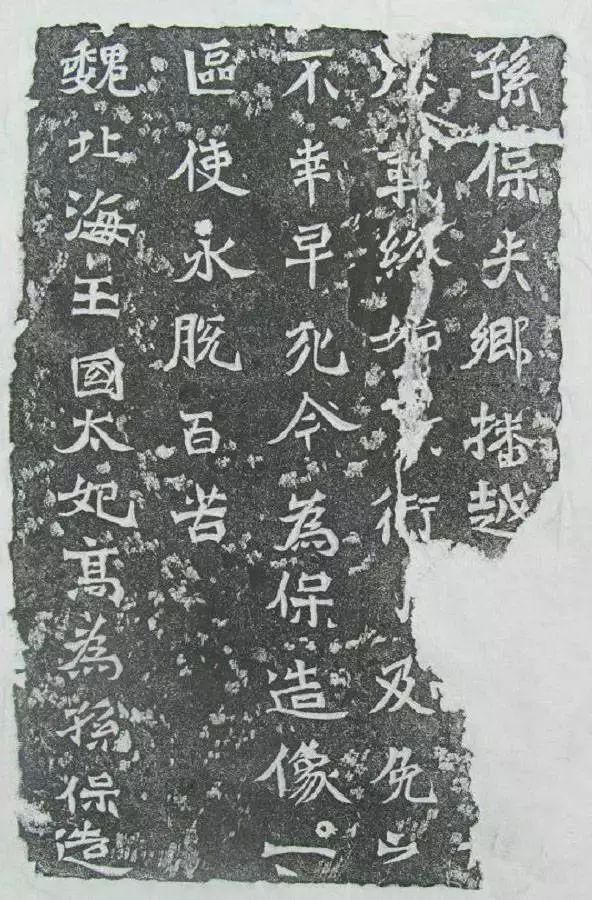 孫保失鄉播越
事緣及免
不幸早死今為保造像一
區使永脫百苦
魏北海王國太妃高為孫保造